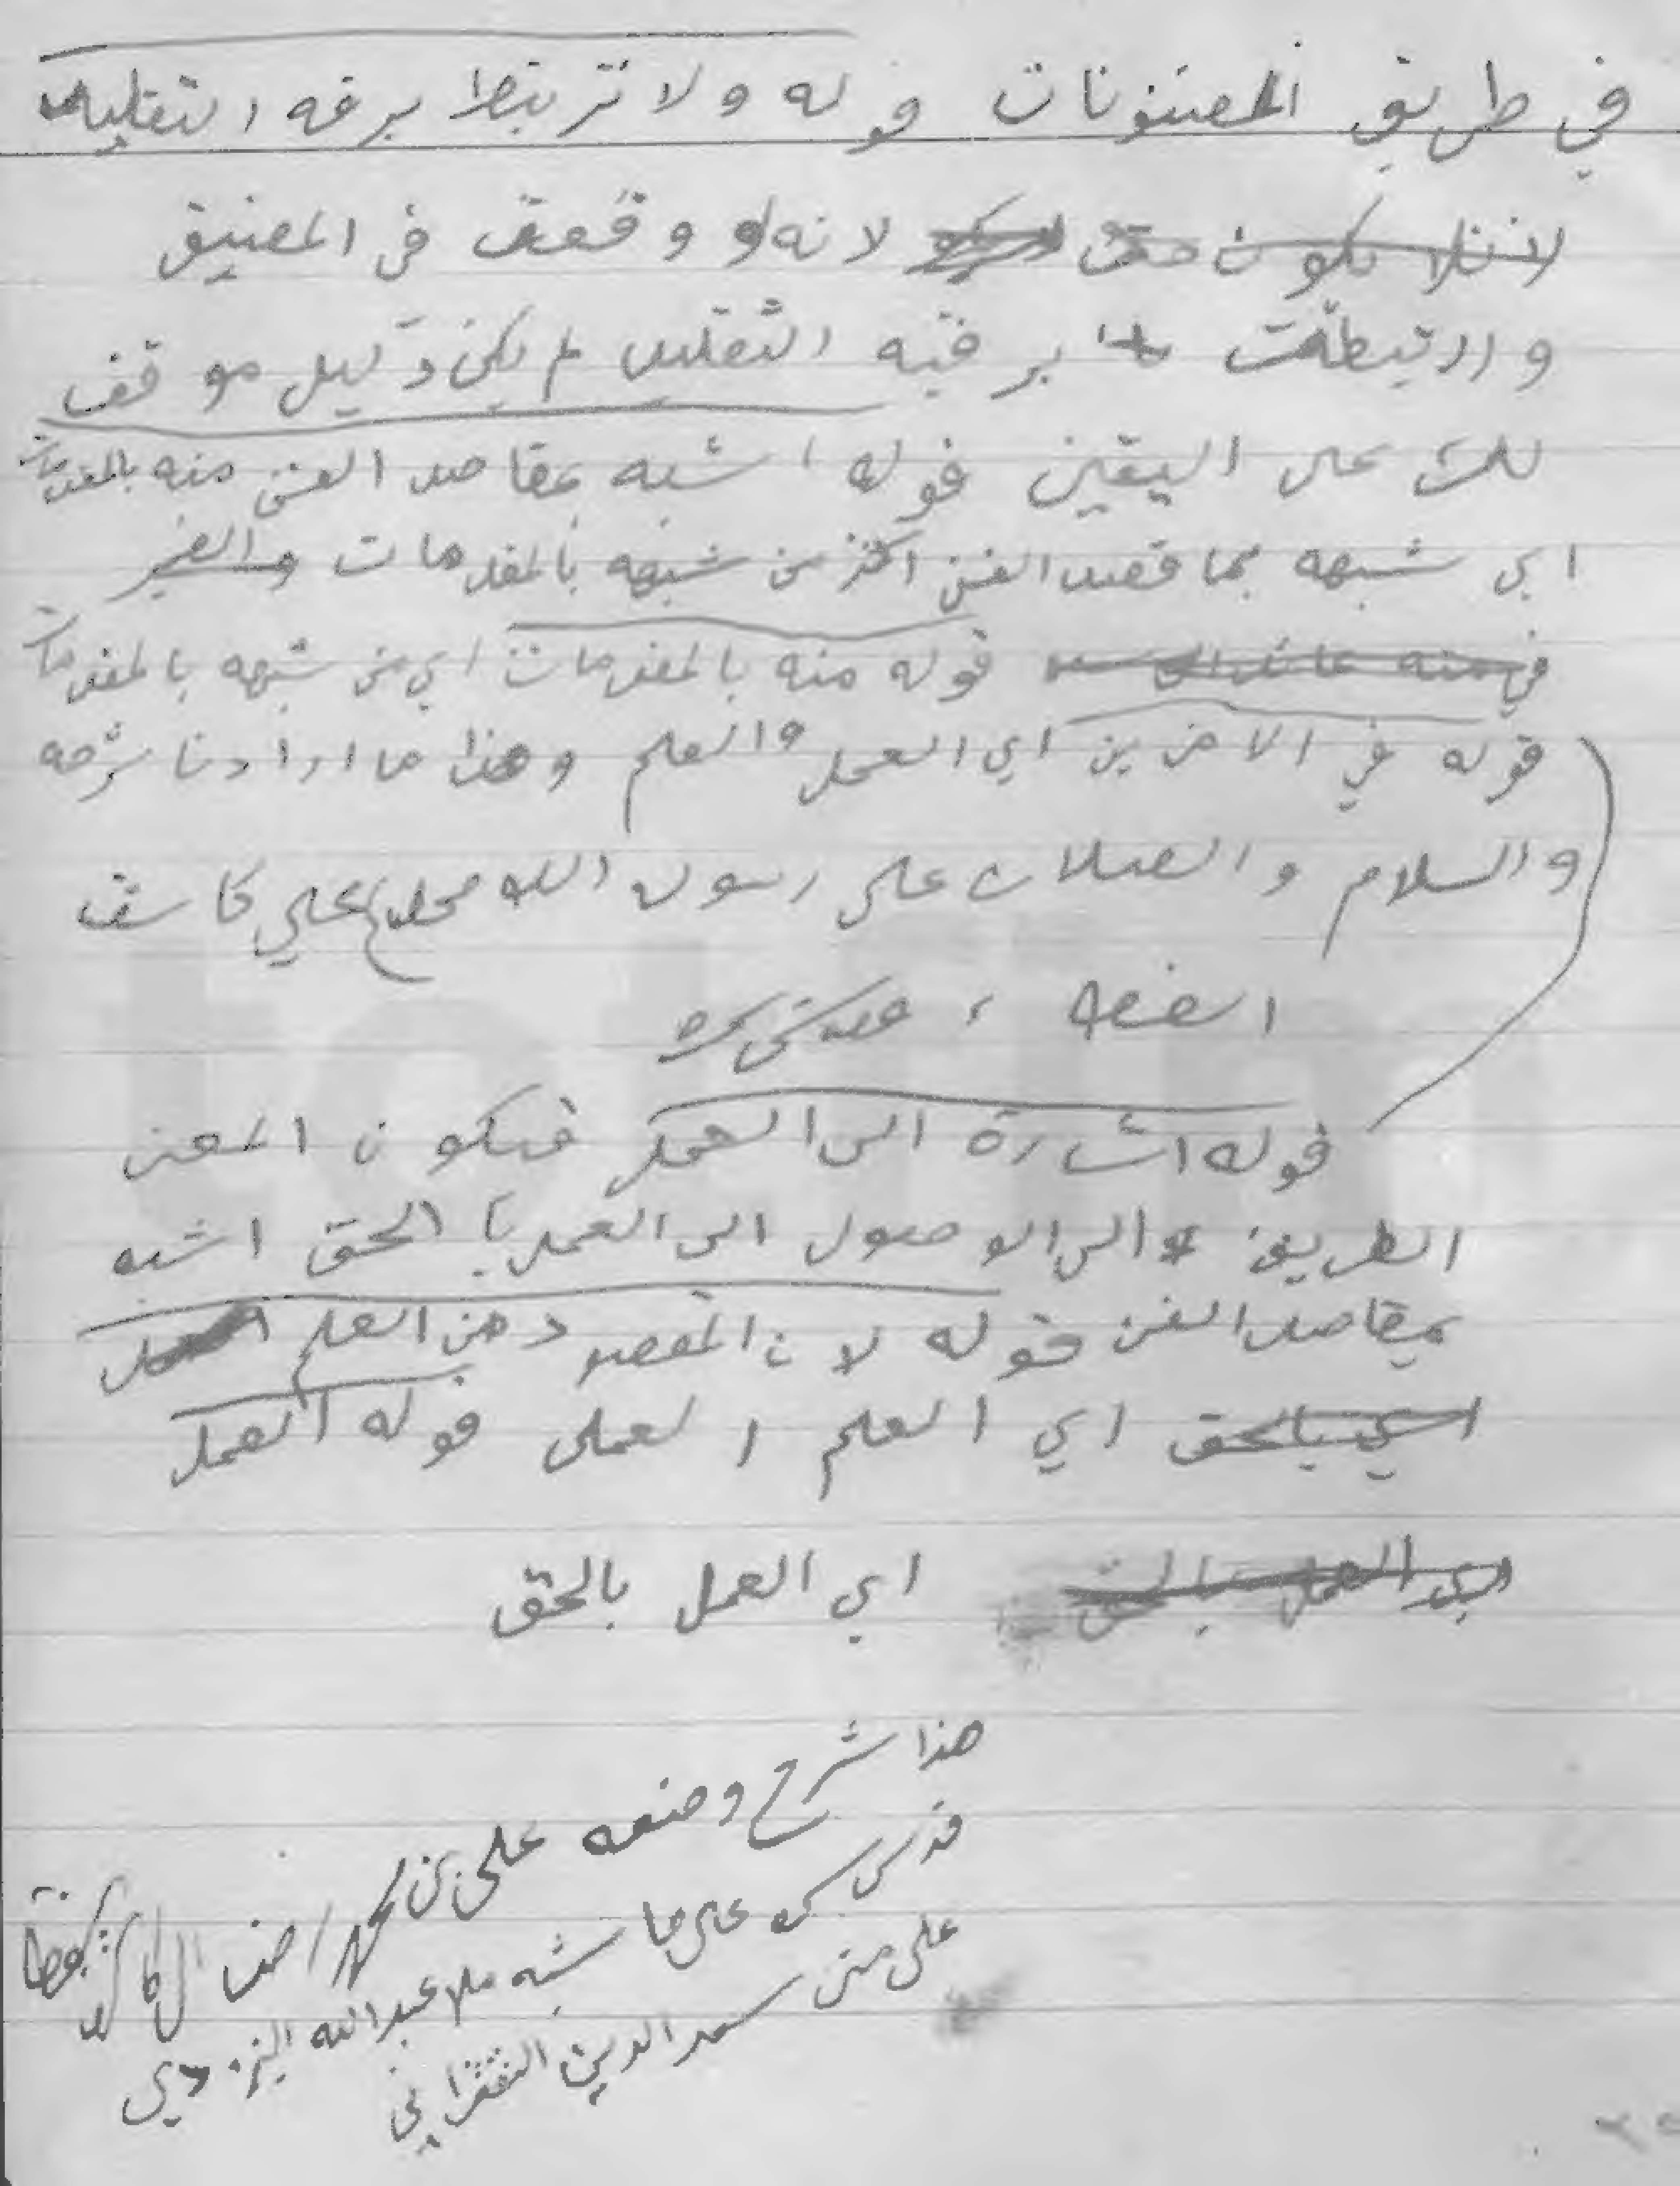 في طريق المضنونات قوله ولا تربتط برقه التقليد
لانه لو وقعت في المضيق
وارتبطت برقبه التقليد لم يكن دليل موقف
لك على اليقين قوله اشبه بمقاصد الفن منه بالمقدمات
اي شبهه بما قصد الفن اكثر من شبهه بالمقدمات
قوله منه بالمقدمات اي من شبهه بالمقدمات
قوله في الامرين اي العمل والعلم وهذا ما اردنا شرحه
والسلام والصلات على رسول الله محمد علي كاشف
الغطاء
قوله اشارة الى العمل فيكون المعنى
الطريق الى الوصول الى العمل بالحق اشبه
بمقاصد الفن قوله لان المقصود من العلم العمل
اي العلم العملى قوله العمل
اي العمل بالحق
هذا شرح وضعه على بن محمد رضا ال كاشف الغطا
قدس سره على حاشيه ملا عبدالله اليزدي
على متن سعد الدين التفتزاني